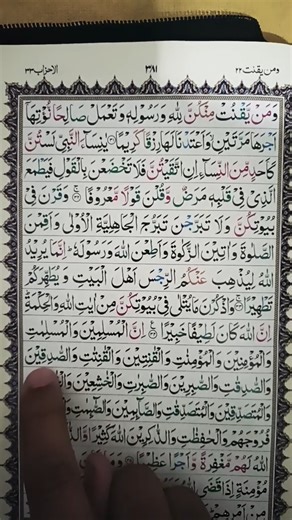 ومن يقنت ٢٢
٣٨١
الاحزاب ٣٣
وَمَنْ يَّقْنُتْ مِنْكُنَّ لِلّٰهِ وَرَسُوْلِهٖ وَتَعْمَلْ صَالِحًا نُّؤْتِهَاۤ
اَجْرَهَا مَرَّتَيْنِ وَاَعْتَدْنَا لَهَا رِزْقًا كَرِيْمًا يٰنِسَآءَ النَّبِيِّ لَسْتُنَّ
كَاَحَدٍ مِّنَ النِّسَآءِ اِنِ اتَّقَيْتُنَّ فَلَا تَخْضَعْنَ بِالْقَوْلِ فَيَطْمَعَ
الَّذِيْ فِيْ قَلْبِهٖ مَرَضٌ وَّقُلْنَ قَوْلًا مَّعْرُوْفًا وَقَرْنَ فِيْ
بُيُوْتِكُنَّ وَلَا تَبَرَّجْنَ تَبَرُّجَ الْجَاهِلِيَّةِ الْاُوْلٰى وَاَقِمْنَ
الصَّلٰوةَ وَاٰتِيْنَ الزَّكٰوةَ وَاَطِعْنَ اللّٰهَ وَرَسُوْلَهٗ اِنَّمَا يُرِيْدُ
اللّٰهُ لِيُذْهِبَ عَنْكُمُ الرِّجْسَ اَهْلَ الْبَيْتِ وَيُطَهِّرَكُمْ
تَطْهِيْرًا وَاذْكُرْنَ مَا يُتْلٰى فِيْ بُيُوْتِكُنَّ مِنْ اٰيٰتِ اللّٰهِ وَالْحِكْمَةِ
اِنَّ اللّٰهَ كَانَ لَطِيْفًا خَبِيْرًا اِنَّ الْمُسْلِمِيْنَ وَالْمُسْلِمٰتِ
وَالْمُؤْمِنِيْنَ وَالْمُؤْمِنٰتِ وَالْقٰنِتِيْنَ وَالْقٰنِتٰتِ وَالصّٰدِقِيْنَ
وَالصّٰدِقٰتِ وَالصّٰبِرِيْنَ وَالصّٰبِرٰتِ وَالْخٰشِعِيْنَ
وَالْمُتَصَدِّقِيْنَ وَالْمُتَصَدِّقٰتِ وَالصَّآئِمِيْنَ وَالصّٰٓئِمٰتِ
فُرُوْجَهُمْ وَالْحٰفِظٰتِ وَالذّٰكِرِيْنَ اللّٰهَ كَثِيْرًا
اللّٰهُ لَهُمْ مَّغْفِرَةً وَّاَجْرًا عَظِيْمًا
مُؤْمِنَةٍ اِذَا قَضَى
مِنْ اَمْرِهِمْ